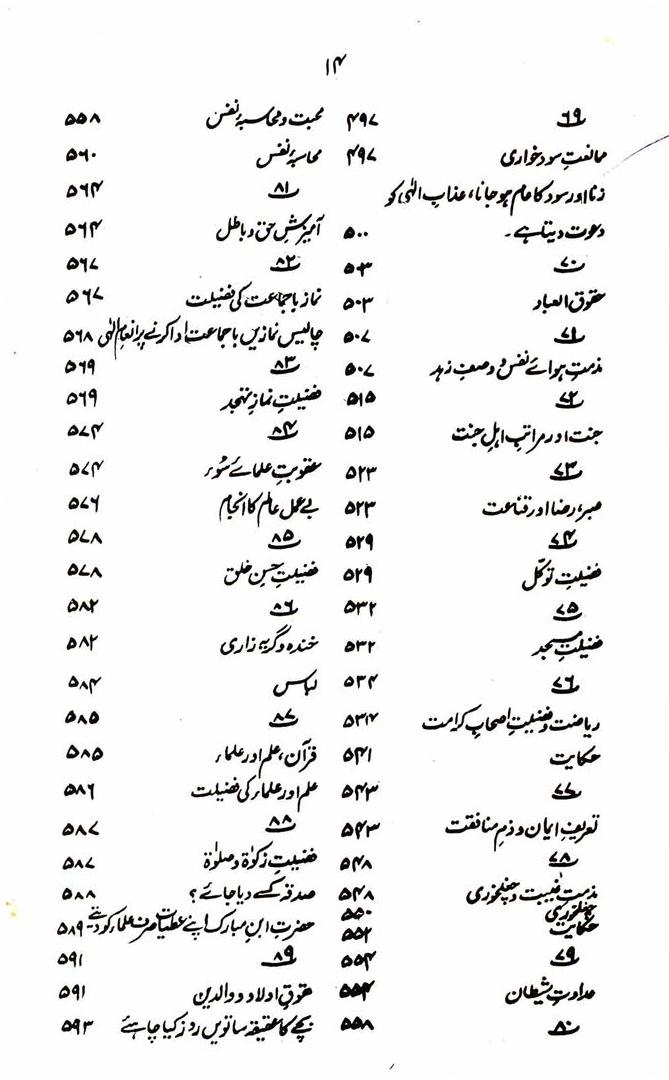 ۱۴
باب ۶۹ ۴۹۷
ممانعتِ سود خواری ۴۹۷
زنا اور سود کا عام ہو جانا، عذابِ الٰہی کو
دعوت دیتا ہے۔ ۵۰۰
باب ۷۰ ۵۰۳
حقوق العباد ۵۰۳
باب ۷۱ ۵۰۷
مذمتِ ہوائے نفس و وصفِ زہد ۵۰۷
باب ۷۲ ۵۱۵
جنت اور مراتبِ اہلِ جنت ۵۱۵
باب ۷۳ ۵۲۳
صبر، رضا اور قناعت ۵۲۳
باب ۷۴ ۵۲۹
فضیلتِ توکّل ۵۲۹
باب ۷۵ ۵۳۲
فضیلتِ مسجد ۵۳۲
باب ۷۶ ۵۳۴
ریاضت و فضیلتِ اصحابِ کرامت ۵۳۴
حکایت ۵۴۱
باب ۷۷ ۵۴۳
تعریفِ ایمان و ذمِ منافقت ۵۴۳
باب ۷۸ ۵۴۸
مذمتِ غیبت و چغلخوری ۵۴۸
چغلخوری ۵۵۰
حکایت ۵۵۲
باب ۷۹ ۵۵۴
عداوتِ شیطان ۵۵۴
باب ۸۰ ۵۵۸
محبت و محاسبۂ نفس ۵۵۸
محاسبۂ نفس ۵۶۰
باب ۸۱ ۵۶۴
آمیزشِ حق و باطل ۵۶۴
باب ۸۲ ۵۶۷
نماز باجماعت کی فضیلت ۵۶۷
چالیس نمازیں باجماعت ادا کرنے پر انعامِ الٰہی ۵۶۸
باب ۸۳ ۵۶۹
فضیلتِ نمازِ تہجد ۵۶۹
باب ۸۴ ۵۷۴
عقوبتِ علمائے سُوء ۵۷۴
بے عمل عالم کا انجام ۵۷۶
باب ۸۵ ۵۷۸
فضیلتِ حسنِ خلق ۵۷۸
باب ۸۶ ۵۸۲
خندہ و گریہ زاری ۵۸۲
لباس ۵۸۴
باب ۸۷ ۵۸۵
قرآن، علم اور علماء ۵۸۵
علم اور علماء کی فضیلت ۵۸۶
باب ۸۸ ۵۸۷
فضیلتِ زکوٰۃ و صلوٰۃ ۵۸۷
صدقہ کسے دیا جائے؟ ۵۸۸
حضرت ابنِ مبارک اپنے عطیات صرف علماء کو دیتے ۵۸۹
باب ۸۹ ۵۹۱
حقوقِ اولاد و والدین ۵۹۱
بچے کا عقیقہ ساتویں روز کیا جائے ۵۹۳